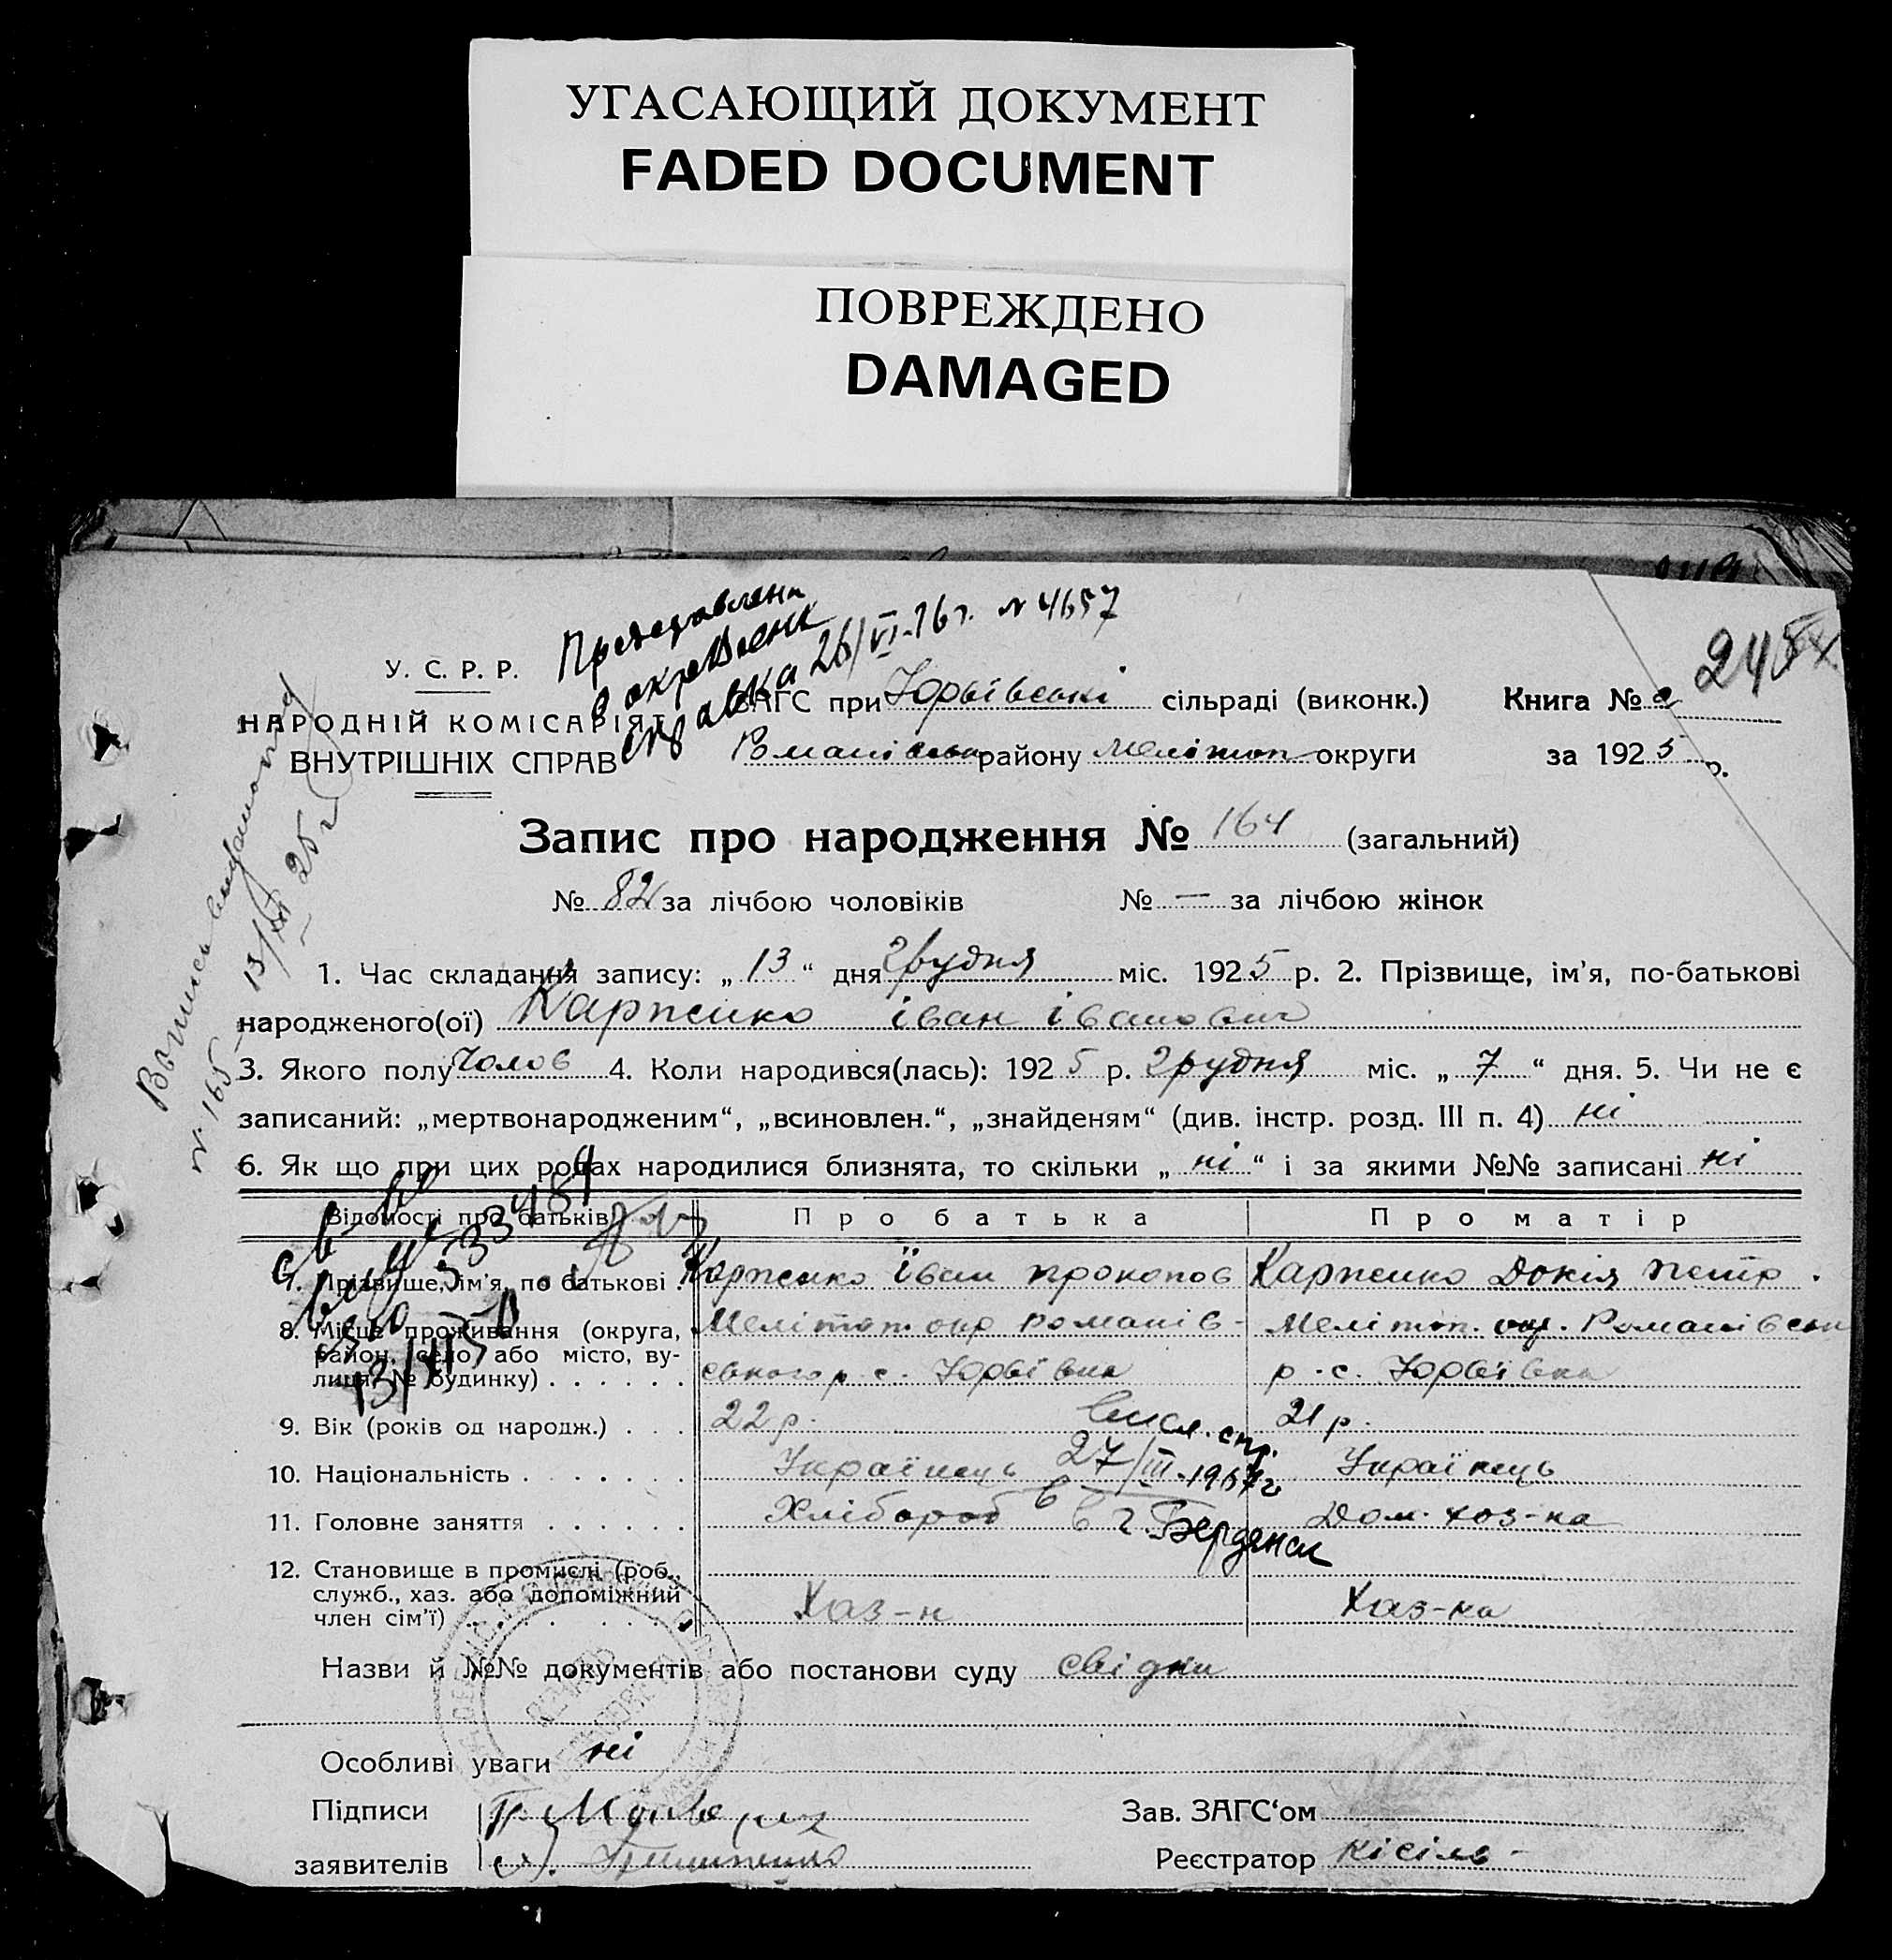 УГАСАЮЩИЙ ДОКУМЕНТ
FADED DOCUMENT
ПОВРЕЖДЕНО
DAMAGED
№ 4657
245
У. С. Р. Р.
НАРОДНІЙ КОМІСАРІЯТ
ВНУТРІШНІХ СПРАВ
справка 26/VI-
ЗАГС при Юрьївські сільраді (виконк.) Книга № 2
району Мелітоп округи за 1925 р.
Запис про народження № 164 (загальний)
№ 82 за лічбою чоловіків № — за лічбою жінок
1. Час складання запису: „ 13 “ дня грудня міс. 1925 р. 2. Прізвище, ім'я, по-батькові
народженого(ої) Карпенко іван іванович
3. Якого полу чолов 4. Коли народився(лась): 1925 р. грудня міс. „ 7 “ дня. 5. Чи не є
записаний: „мертвонародженим“, „всиновлен.“, „знайденям“ (див. інстр. розд. III п. 4) ні
6. Як що при цих родах народилися близнята, то скільки „ ні “ і за якими №№ записані ні
Выпись
№ 165 13/XII 25 г
Відомості про батьків Про батька Про матір
7. Прізвище, ім'я, по батькові . Карпенко Їван прокопов Карпенко Докія петр.
8. Місце проживання (округа, Мелітоп. окр романів- Мелітоп. окр. Романівськ
район, село або місто, ву-
лиця, № будинку) . . . . . . ського р. с. Юрьївка р. с. Юрьївка
9. Вік (років од народж.) . . . 22 р. 21 р.
спр.
10. Національність . . . . . . . Українець 27/III- Українець
11. Головне заняття . . . . . . Хлібороб в г. Бердянск Дом. хоз-ка
12. Становище в промислі (роб.,
служб., хаз. або допоміжний
член сім'ї) . . . . . . . Хаз-н Хаз-ка
Назви й №№ документів або постанови суду свідки
Особливі уваги ні
Підписи Зав. ЗАГС‘ом
заявителів Реєстратор Кісіль